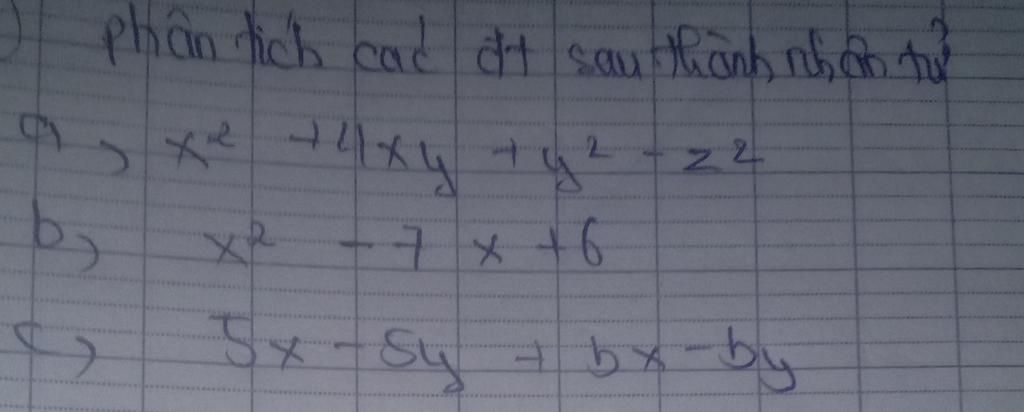 ) phân tích các đt sau thành nhân tử
a, x² + 4xy + y² - z²
b, x² - 7x + 6
c, 5x - 5y + bx - by